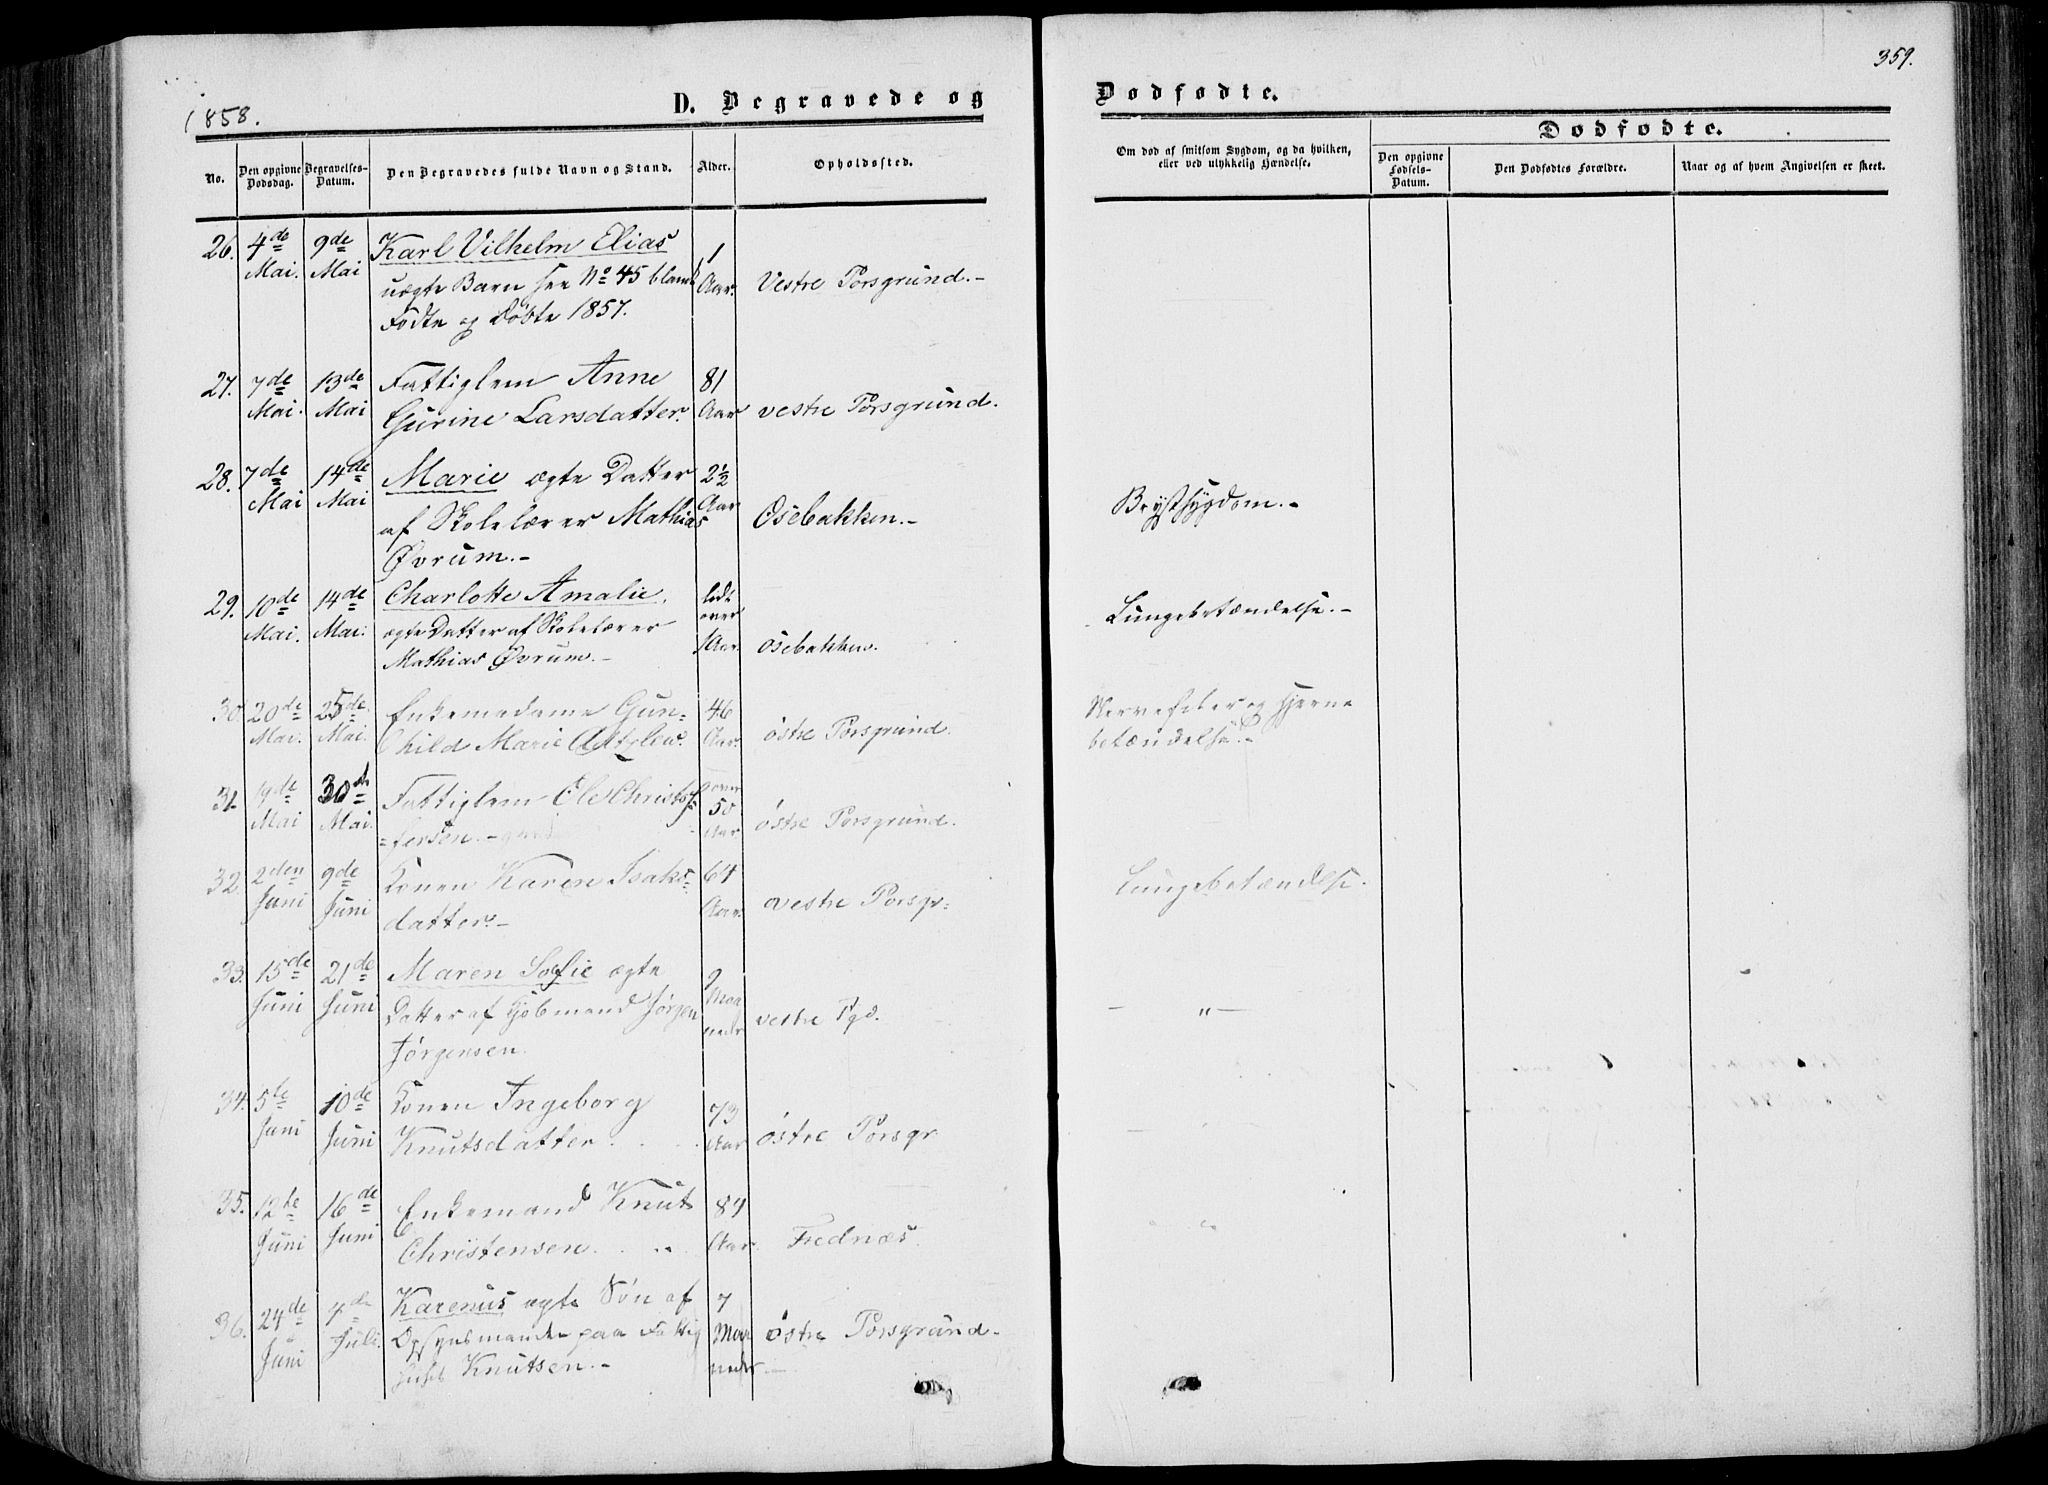 359.
1858.
D. Begravede og
Dødfødte.
No.
Den opgivne Dødsdag.
Begravelses-Datum.
Den Begravedes fulde Navn og Stand.
Alder.
Opholdssted.
Om død af smitsom Sygdom, og da hvilken, eller ved ulykkelig Hændelse.
Dødfødte.
Den opgivne Fødsels-Datum.
Den Dødfødtes Forældre.
Naar og af hvem Angivelsen er skeet.
26. 4de 9de Karl Vilhelm Elias 1
Mai. Mai uægte Barn see No 45 blandt Aar. Vestre Porsgrund.-
Fødte og Døbte 1857.
27. 7de 13de Fattiglem Anne 81
Mai. Mai Gurine Larsdatter. Aar vestre Porsgrund.
28. 7de 14de Marie ægte Datter 2½
Mai Mai af Skolelærer Mathias Aar Osebakken.- Brystsygdom.-
Øvrum.-
29. 10de 14de Charlotte Amalie, lidt
Mai. Mai. ægte Datter af Skolelærer over Lungebetændelse.-
Mathias Øvrum.- 1 Aar. Osebakken.
30. 20de 25de Enkemadame Gun= 46 Nervefeber og Hjerne
Mai. Mai. hild Marie Aar. østre Porsgrund. betændelse.-
31. 19de 30de Fattiglem Ole Christof over
Mai Mai. =fersen.- 50 Aar østre Porsgrund.
32. 2den 9de Konen Karen Isaks= 64
Juni Juni datter.- Aar. vestre Porsgr= Lungebetændelse.
33. 15de 21de Maren Sofie ægte 9
Juni Juni Datter af Jørgen Maa
Jørgensen. neder vestre Pgd. - " -
34. 5te 10de Konen Ingeborg 73
Juni Juni Knutsdatter. Aar østre Porsgr
35. 12te 16de Enkemand Knut 89
Juni Juni Christensen. Aar. Frednæs.
36. 24de 4de Karenus ægte Søn af 7
Juni Juli. Opsynsmanden paa Fattig Maa østre Porsgrund.
huset Knutsen.- neder.-